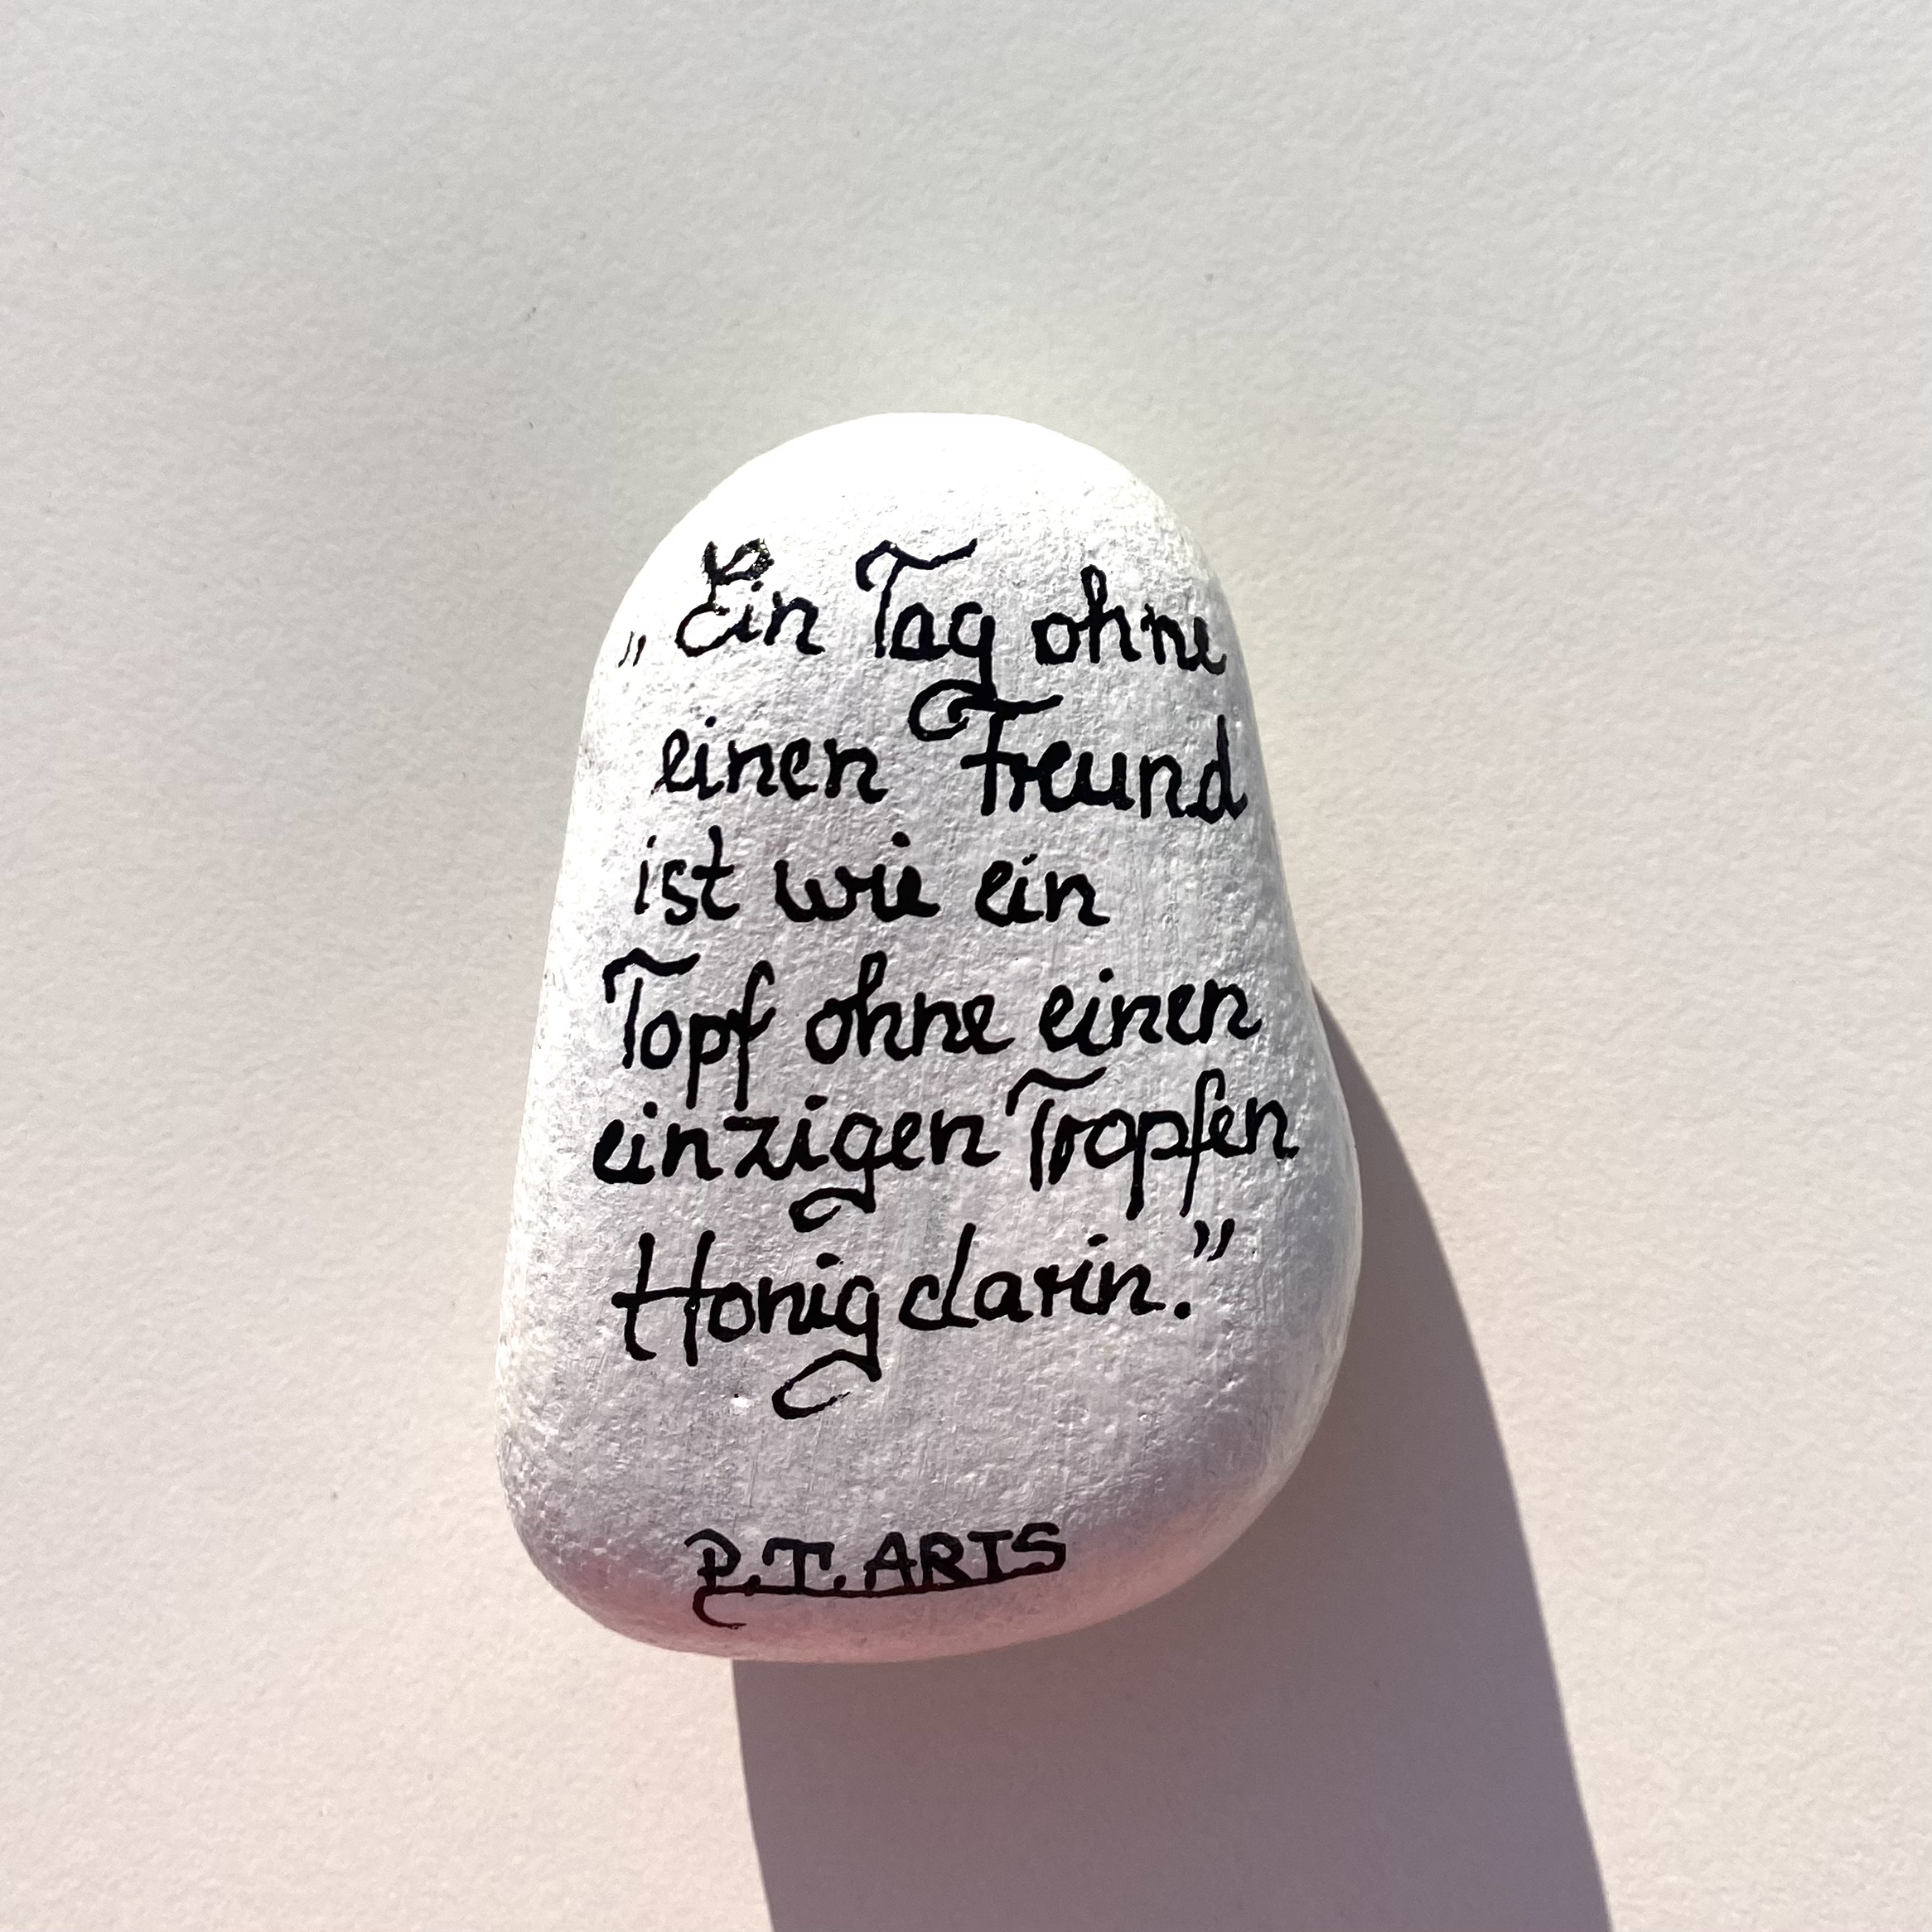 „Ein Tag ohne
einen Freund
ist wie ein
Topf ohne einen
einzigen Tropfen
Honig darin.”
P.T. ARTS